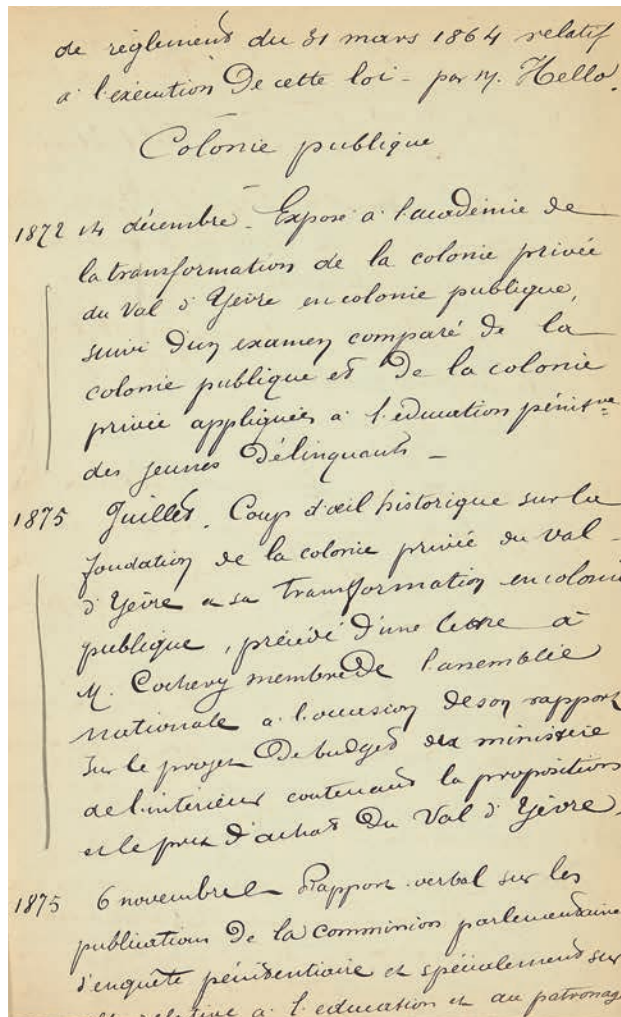 de règlement du 31 mars 1864 relatif
à l'exécution De cette loi - par M. Hello.
Colonie publique
1872 14 décembre. Exposé à l'académie de
la transformation de la colonie privée
du Val d'Yèvre en colonie publique,
suivi d'un examen comparé de la
colonie publique et De la colonie
privée appliquées à l'éducation pénit.re
des jeunes Délinquants -
1875 Juillet. Coup d'œil historique sur la
fondation de la colonie privée du Val -
d'Yèvre et sa transformation en colonie
publique, précédé D'une lettre à
M. Cochery membre De l'assemblée
nationale à l'occasion de son rapport
sur le projet De budget du ministère
de l'intérieur contenant la proposition
et le prix D'achat Du Val d'Yèvre.
1875 6 novembre Rapport verbal sur les
publications De la commission parlementaire
d'enquête pénitentiaire et spécialement sur
relative à l'éducation et au patronage